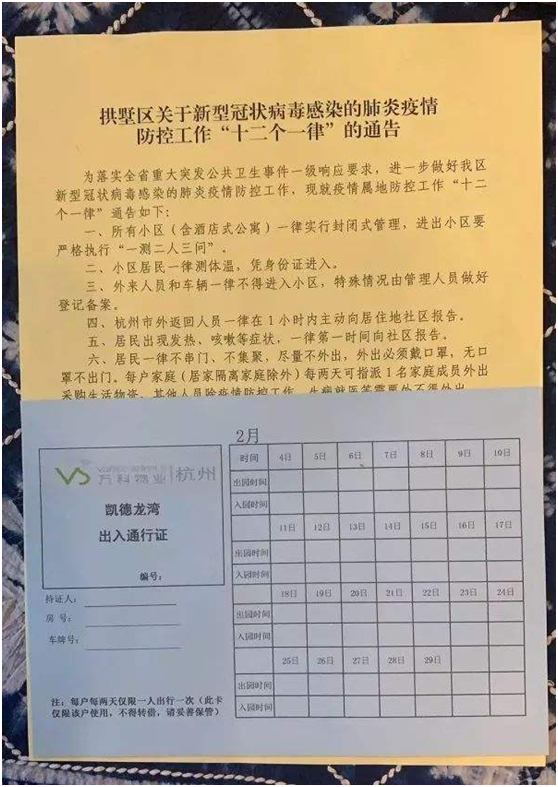 拱墅区关于新型冠状病毒感染的肺炎疫情
防控工作“十二个一律”的通告
为落实全省重大突发公共卫生事件一级响应要求，进一步做好我区
新型冠状病毒感染的肺炎疫情防控工作，现就疫情属地防控工作“十二
个一律”通告如下：
一、所有小区（含酒店式公寓）一律实行封闭式管理，进出小区要
严格执行“一测二人三问”。
二、小区居民一律测体温，凭身份证进入。
三、外来人员和车辆一律不得进入小区，特殊情况由管理人员做好
登记备案。
四、杭州市外返回人员一律在1小时内主动向居住地社区报告。
五、居民出现发热、咳嗽等症状，一律第一时间向社区报告。
六、居民一律不串门、不集聚，尽量不外出，外出必须戴口罩，无口
罩不出门。每户家庭（居家隔离家庭除外）每两天可指派1名家庭成员外出
采购生活物资，其他人员除疫情防控工作、生病就医等需要外不得外出
万科物业|杭州
凯德龙湾
出入通行证
编号：
持证人：
房 号：
车牌号：
注：每户每两天仅限一人出行一次（此卡
仅限该户使用，不得转借，请妥善保管）
2月
时间 4日 5日 6日 7日 8日 9日 10日
出园时间
入园时间
11日 12日 13日 14日 15日 16日 17日
出园时间
入园时间
18日 19日 20日 21日 22日 23日 24日
出园时间
入园时间
25日 26日 27日 28日 29日
出园时间
入园时间